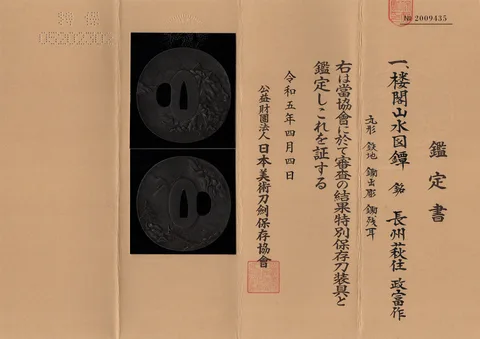 № 2009435
鑑定書
一、楼閣山水図鐔 銘 長州萩住政富作
丸形 鉄地 鋤出彫 鋤残耳
右は當協會に於て審査の結果特別保存刀装具と
鑑定しこれを証する
令和五年四月四日
公益財團法人 日本美術刀劍保存協會